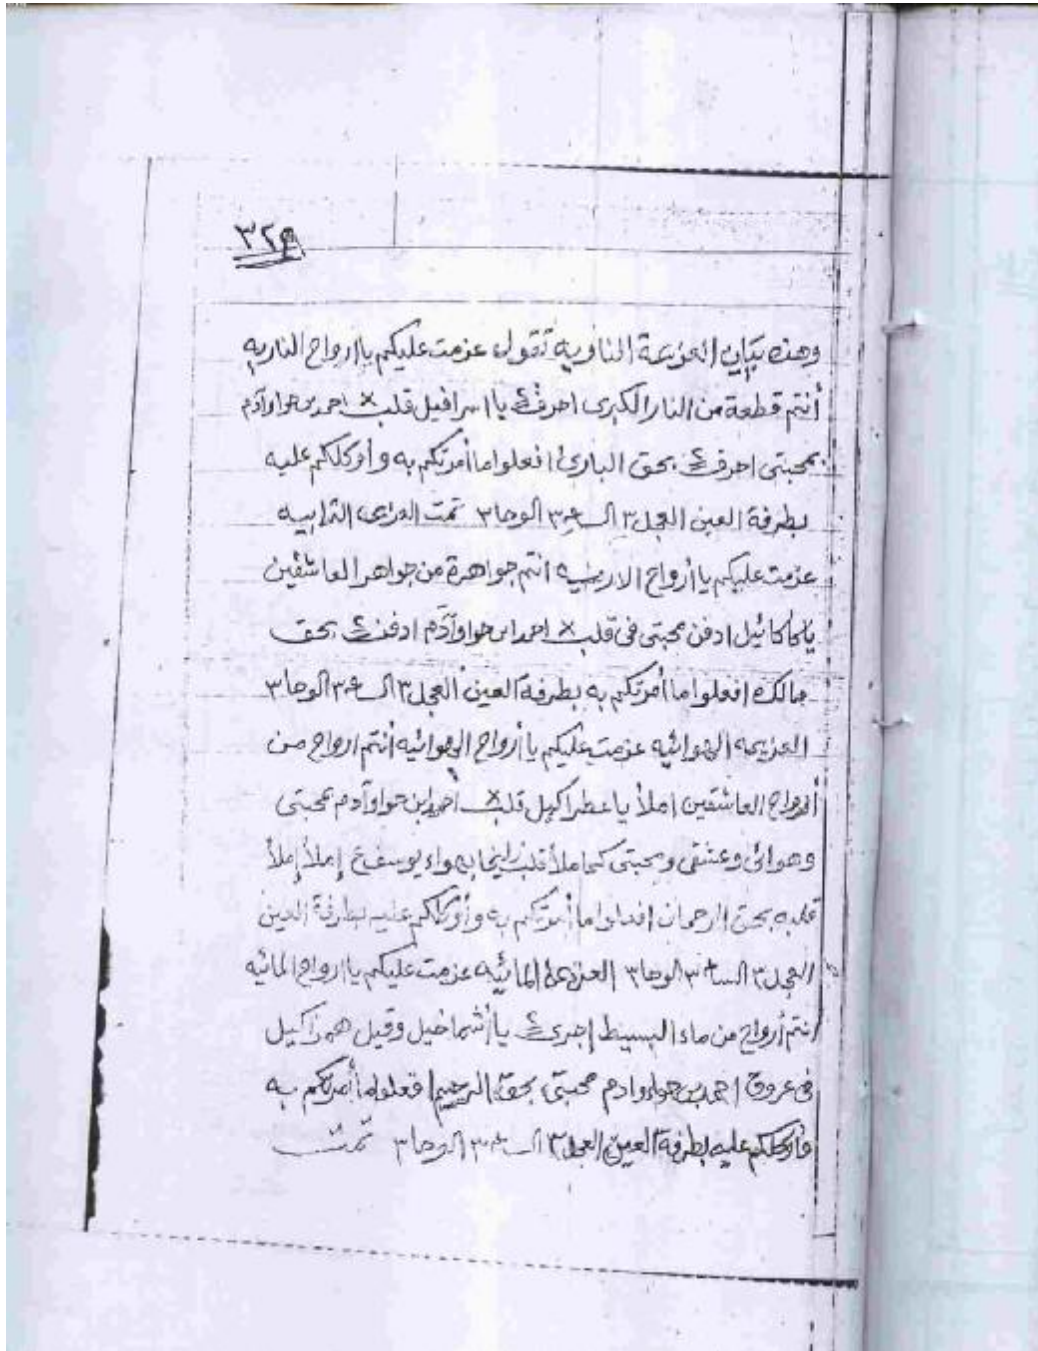 ٣٢٩
وهذه بيان العزيمة النارية تقول عزمت عليكم يا ارواح الناريه
أنتم قطعة من النار الكبرى احرق٢ يا اسرافيل قلب × احمد بن حوا وآدم
بمحبتى احرق٢ بحق البارئ افعلوا ما أمرتكم به وأوكلكم عليه
بطرفة العين العجل٣ الساعة٣ الوحا٣ تمت الترابيه
عزمت عليكم يا أرواح الارضيه أنتم جواهرة من جواهر العاشقين
ادفن محبتى فى قلب × احمد ابن حوا وآدم ادفن٢ بحق
مالك افعلوا ما أمرتكم به بطرفة العين العجل٣ الساعة٣ الوحا٣
العزيمه الهوائيه عزمت عليكم يا أرواح الهوائيه أنتم ارواح من
أرواح العاشقين املأ يا عطراكيل قلب × احمد ابن حوا وآدم بمحبتى
وهوائى وعشقى ومحبتى كما ملأ قلب زليخا بهواء يوسف ع إملأ إملأ
قلبه بحق الرحمان افعلوا ما أمرتكم به وأوكلكم عليه بطرفة العين
العجل٣ الساعة٣ الوحا٣ العزيمة المائيه عزمت عليكم يا ارواح المائيه
انتم أرواح من ماء البسيط إجرى٢ يا أشماخيل وقيل همزاكيل
فى عروق احمد بن حواء وادم محبتى بحق الرحيم افعلوا ما أمرتكم به
وأوكلكم عليه بطرفة العين العجل٣ الساعة٣ الوحا٣ تمت